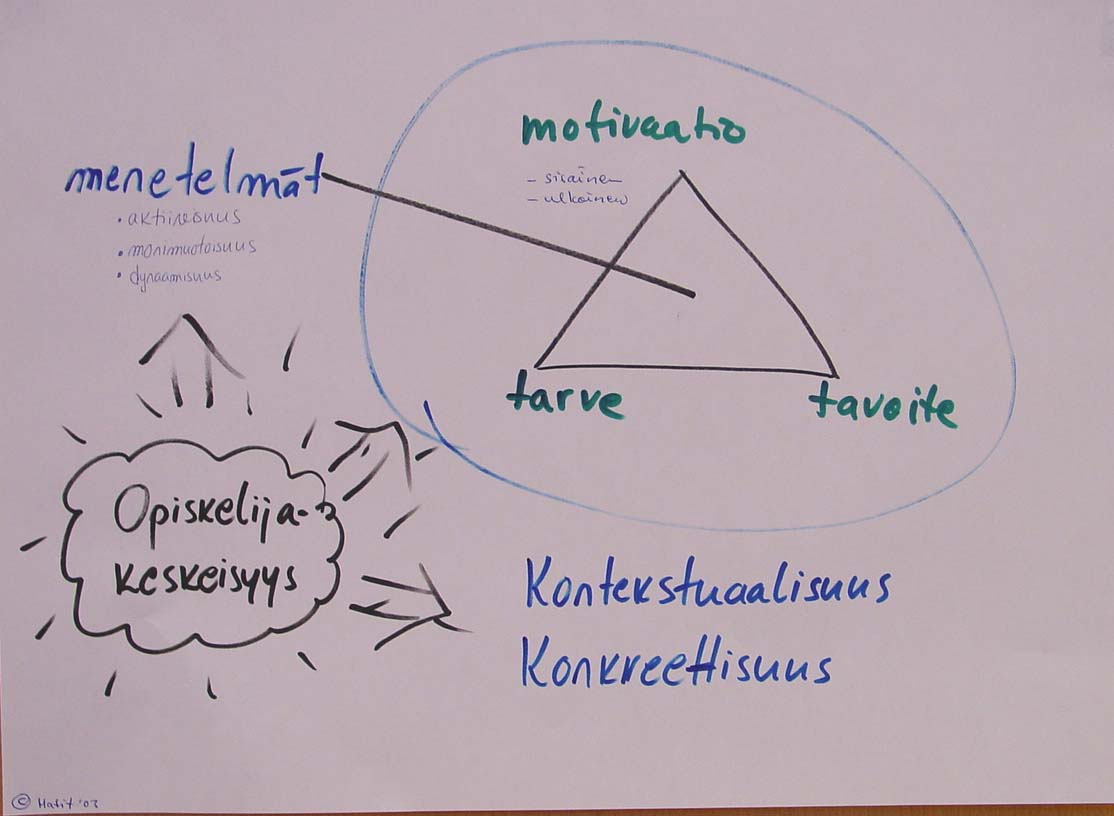 motivaatio
- sisäinen
- ulkoinen
menetelmät
• aktiivisuus
• monimuotoisuus
• dynaamisuus
tarve
tavoite
Opiskelija-
keskeisyys
Kontekstuaalisuus
Konkreettisuus